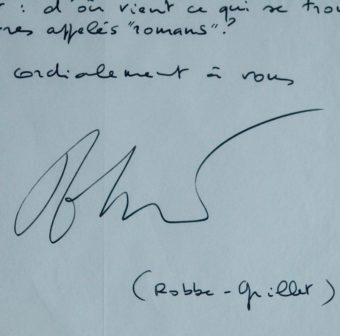 : d'où vient ce qui se trou
res appelés "romans"?
cordialement à vous
(Robbe-Grillet)